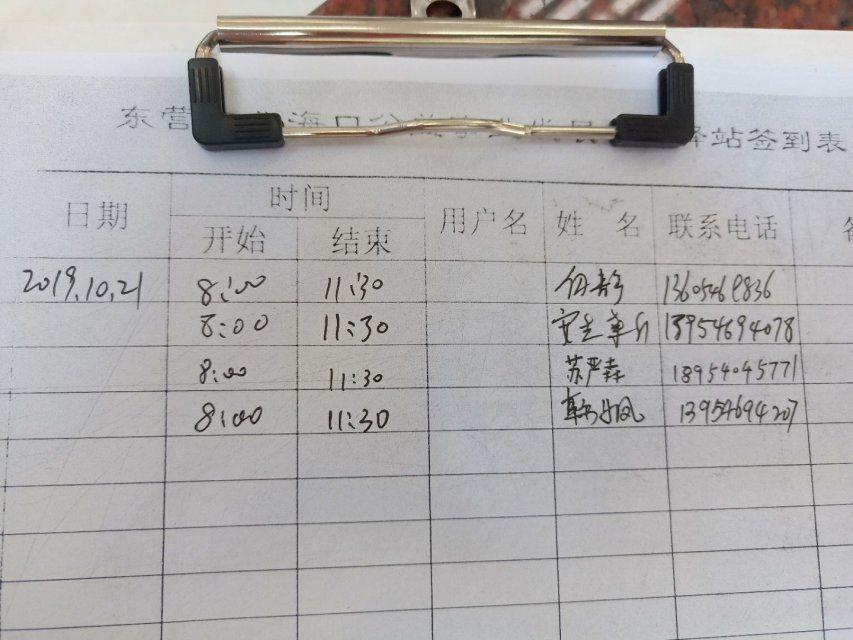 东营 海口公 驿站签到表
日期 时间 用户名 姓 名 联系电话
开始 结束
2019.10.21 8:00 11:30 13605469836
8:00 11:30 13954694078
8:00 11:30 苏严森 18954045771
8:00 11:30 13954694207